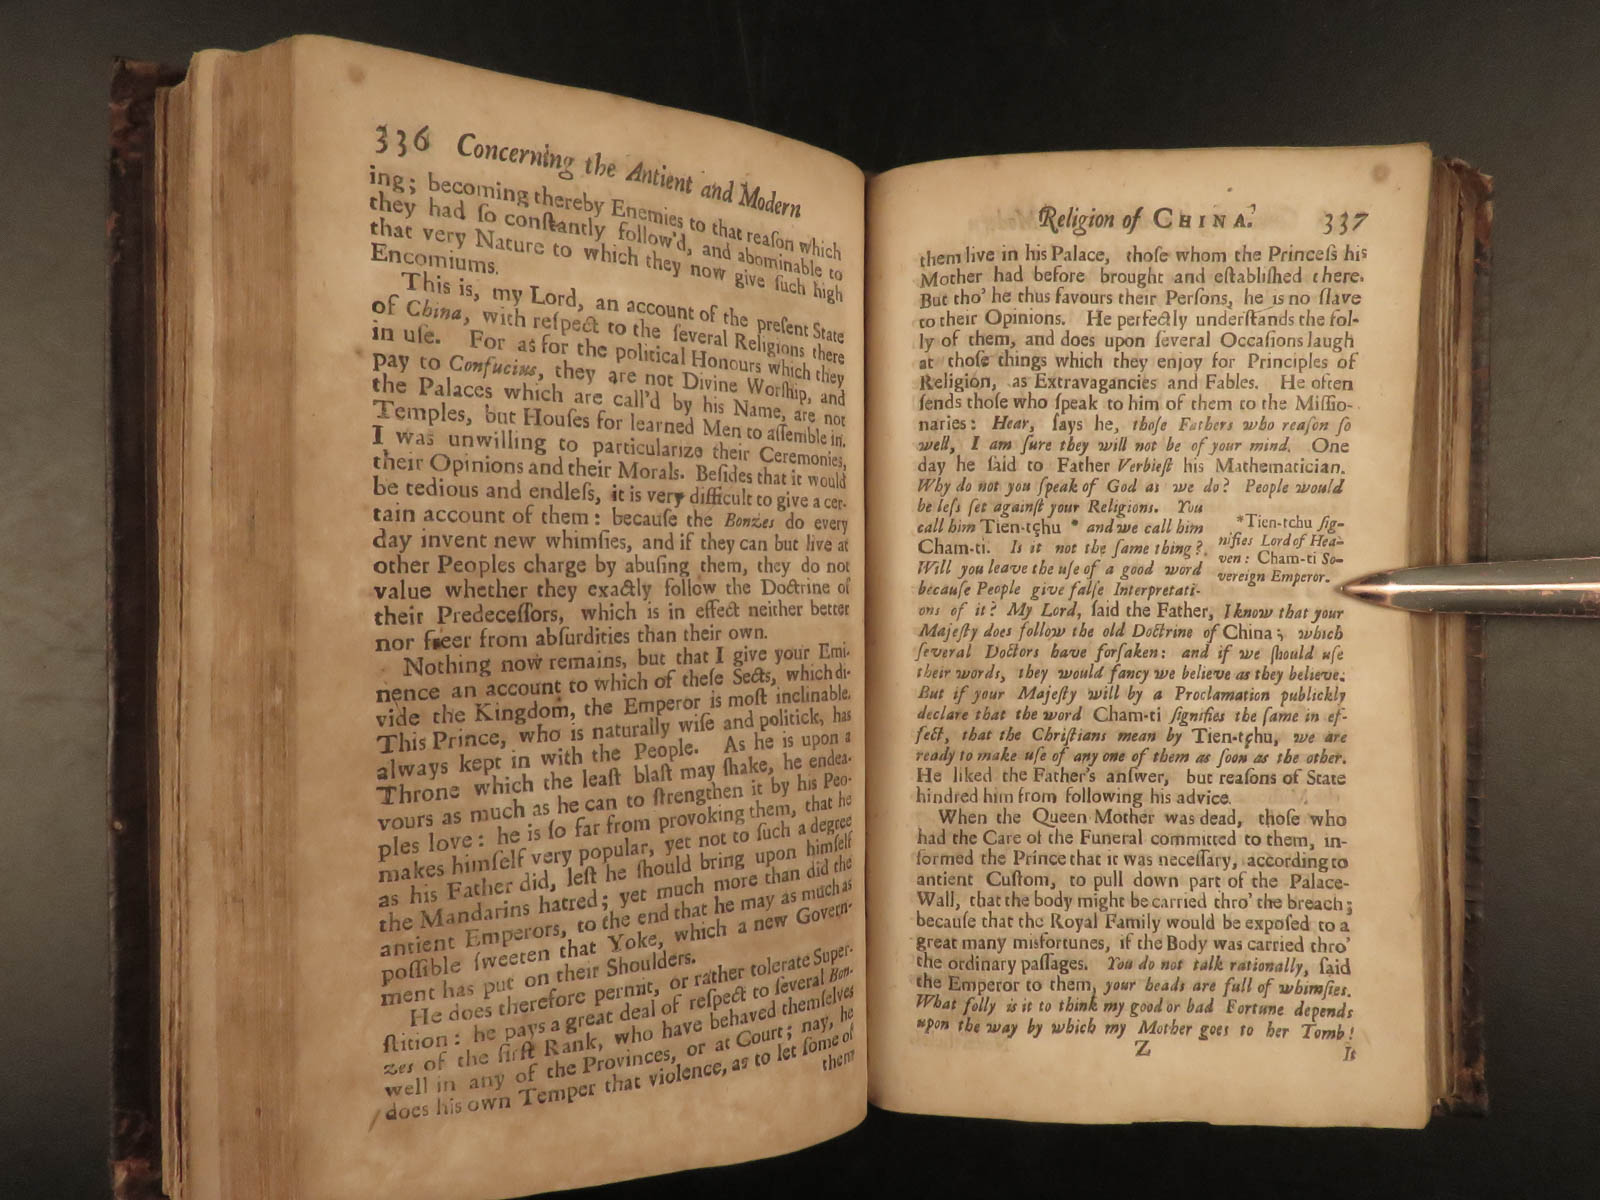 336 Concerning the Antient and Modern
ing; becoming thereby Enemies to that reaſon which
they had ſo conſtantly follow'd, and abominable to
that very Nature to which they now give ſuch high
Encomiums.
This is, my Lord, an account of the preſent State
of China, with reſpect to the ſeveral Religions there
in uſe. For as for the political Honours which they
pay to Confucius, they are not Divine Worſhip, and
the Palaces which are call'd by his Name, are not
Temples, but Houſes for learned Men to aſſemble in.
I was unwilling to particularize their Ceremonies,
their Opinions and their Morals. Beſides that it would
be tedious and endleſs, it is very difficult to give a cer-
tain account of them: becauſe the Bonzes do every
day invent new whimſies, and if they can but live at
other Peoples charge by abuſing them, they do not
value whether they exactly follow the Doctrine of
their Predeceſſors, which is in effect neither better
nor freer from abſurdities than their own.
Nothing now remains, but that I give your Emi-
nence an account to which of theſe Sects, which di-
vide the Kingdom, the Emperor is moſt inclinable.
This Prince, who is naturally wiſe and politick, has
always kept in with the People. As he is upon a
Throne which the leaſt blaſt may ſhake, he endea-
vours as much as he can to ſtrengthen it by his Peo-
ples love: he is ſo far from provoking them, that he
makes himſelf very popular, yet not to ſuch a degree
as his Father did, leſt he ſhould bring upon himſelf
the Mandarins hatred; yet much more than did the
antient Emperors, to the end that he may as much as
poſſible ſweeten that Yoke, which a new Govern-
ment has put on their Shoulders.
He does therefore permit, or rather tolerate Super-
ſtition: he pays a great deal of reſpect to ſeveral Bon-
zes of the firſt Rank, who have behaved themſelves
well in any of the Provinces, or at Court; nay, he
does his own Temper that violence, as to let ſome of
them
Religion of CHINA. 337
them live in his Palace, thoſe whom the Princeſs his
Mother had before brought and eſtabliſhed there.
But tho' he thus favours their Perſons, he is no ſlave
to their Opinions. He perfectly underſtands the fol-
ly of them, and does upon ſeveral Occaſions laugh
at thoſe things which they enjoy for Principles of
Religion, as Extravagancies and Fables. He often
ſends thoſe who ſpeak to him of them to the Miſſio-
naries: Hear, ſays he, thoſe Fathers who reaſon ſo
well, I am ſure they will not be of your mind. One
day he ſaid to Father Verbieſt his Mathematician.
Why do not you ſpeak of God as we do? People would
be leſs ſet againſt your Religions. You
call him Tien-tçhu * and we call him
Cham-ti. Is it not the ſame thing?
Will you leave the uſe of a good word
becauſe People give falſe Interpretati-
*Tien-tchu ſig-
nifies Lord of Hea-
ven: Cham-ti So-
vereign Emperor.
ons of it? My Lord, ſaid the Father, I know that your
Majeſty does follow the old Doctrine of China; which
ſeveral Doctors have forſaken: and if we ſhould uſe
their words, they would fancy we believe as they believe.
But if your Majeſty will by a Proclamation publickly
declare that the word Cham-ti ſignifies the ſame in ef-
fect, that the Chriſtians mean by Tien-tçhu, we are
ready to make uſe of any one of them as ſoon as the other.
He liked the Father's anſwer, but reaſons of State
hindred him from following his advice.
When the Queen Mother was dead, thoſe who
had the Care of the Funeral committed to them, in-
formed the Prince that it was neceſſary, according to
antient Cuſtom, to pull down part of the Palace-
Wall, that the body might be carried thro' the breach;
becauſe that the Royal Family would be expoſed to a
great many misfortunes, if the Body was carried thro'
the ordinary paſſages. You do not talk rationally, ſaid
the Emperor to them, your heads are full of whimſies.
What folly is it to think my good or bad Fortune depends
upon the way by which my Mother goes to her Tomb!
Z It